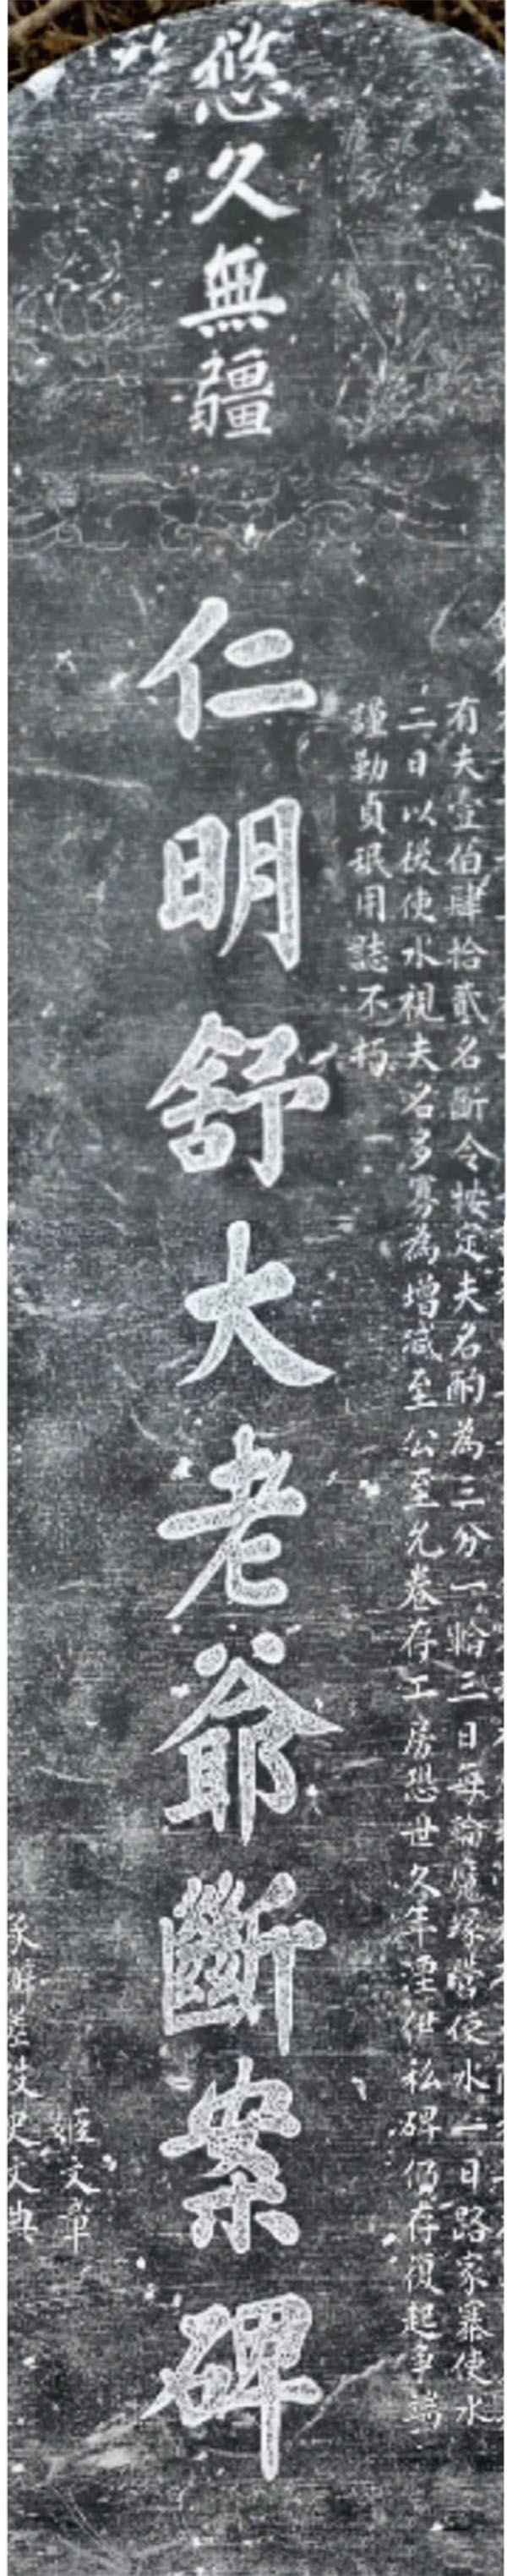 悠久無疆
有夫壹伯肆拾貳名斷令按定夫名酌為三分一輪三日每輪魔塚營使水一日路家寨使水
二日以後使水視夫名多寡為增減至公至允卷存工房恐世久年湮供私碑仍存復起爭端
謹勒貞珉用誌不朽
仁明舒大老爺斷案碑
姬文章